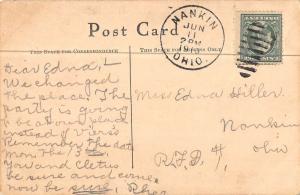 Post Card
NANKIN
JUN
11
2PM
OHIO.
THIS SPACE FOR CORRESPONDENCE
Dear Edna,
We changed
the place. The
party is going
to be at our place
instead of
Remember the date
mon the 13
You and Cletus
be sure and come
now be sure,
Miss Edna Hiller
Nankin
Ohio
R.F.D. 4,